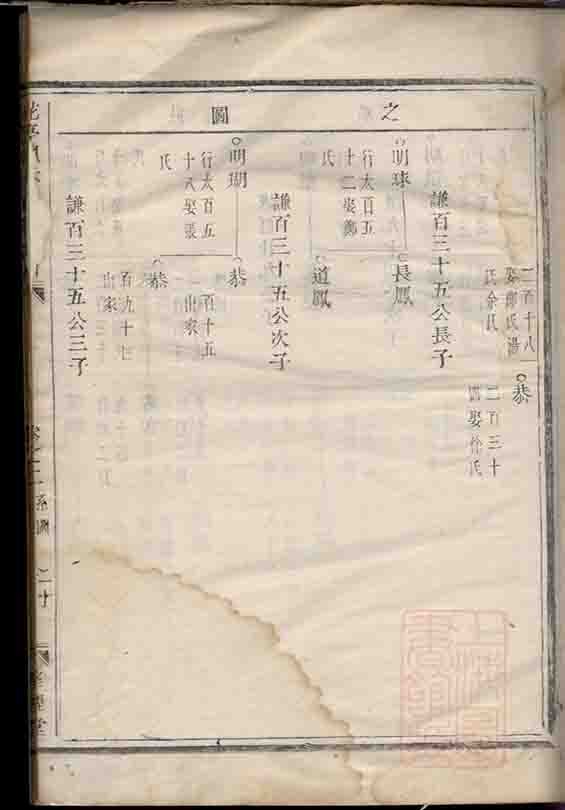 之圖
二百十八
娶鄭氏湯
氏余氏
恭
二百三十
四娶徐氏
謙百三十五公長子
明球
行太百五
十二娶鄭
氏
長鳳
道鳳
謙百三十五公次子
明瑚
行太百五
十八娶張
氏
恭
一百十五
出家
恭
百九十七
出家
謙百三十五公三子
系圖